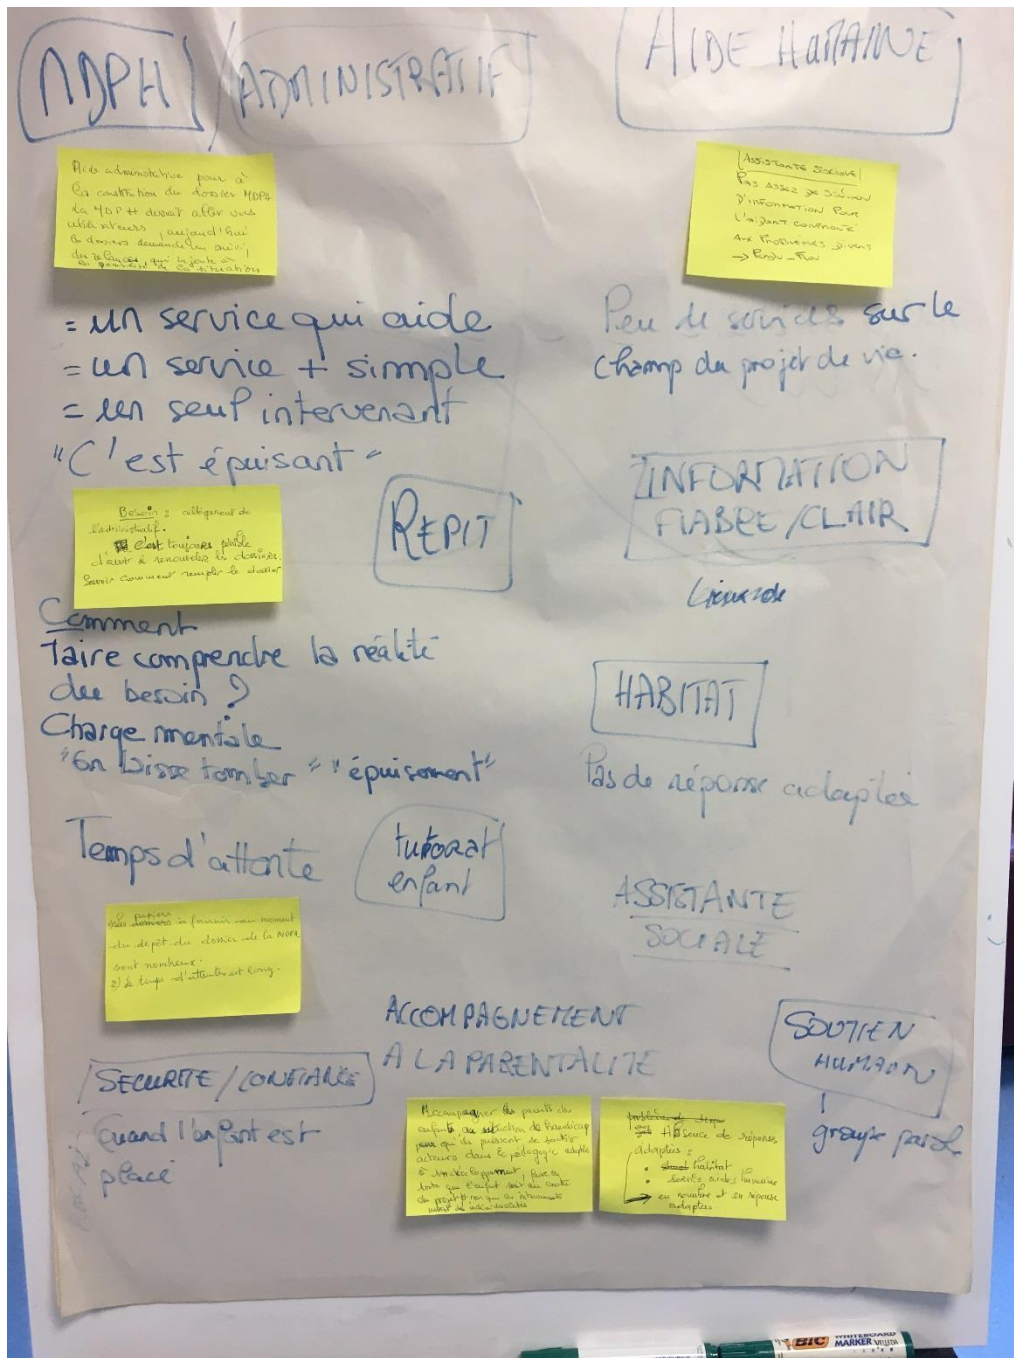 MDPH / ADMINISTRATIF
AIDE HUMAINE
Aide administrative pour à
la constitution du dossier MDPH
La MDPH devrait aller vers
utilisateurs, aujourd'hui
les dossiers demande un suivi,
des relances, qui rajoute à
la de la situation
ASSISTANTE SOCIALE
PAS ASSEZ DE
D'INFORMATION POUR
L'AIDANT CONFRONTÉ
AUX PROBLEMES DIVERS
→
= un service qui aide
= un service + simple
= un seul intervenant
"C'est épuisant"
Peu de services sur le
champ du projet de vie.
Besoin : allègement de
l'administratif.
C'est toujours pénible
d'avoir à renouveler les dossiers.
Savoir comment remplir le dossier
REPIT
INFORMATION
FIABLE/CLAIR
Comment
faire comprendre la réalité
du besoin ?
Charge mentale
"On laisse tomber" "épuisement"
HABITAT
Pas de réponse adaptée
Temps d'attente
tutorat
enfant
ASSISTANTE
SOCIALE
papiers
à fournir au moment
du dépôt du dossier de la MDPH
sont nombreux.
2) le temps d'attente est long.
ACCOMPAGNEMENT
A LA PARENTALITE
SOUTIEN
HUMAIN
groupe parole
SECURITE / CONFIANCE
Quand l'enfant est
placé
Accompagner les parents des
enfants en situation de handicap
pour qu'ils puissent se sentir
acteurs dans la pédagogie adaptée
à son développement, faire en
sorte que l'enfant soit au centre
du projet
Absence de réponses
adaptées :
• habitat
• service aides humaines
→ en nombre et en réponse
adaptées
BIC WHITEBOARD
MARKER VELLEDA